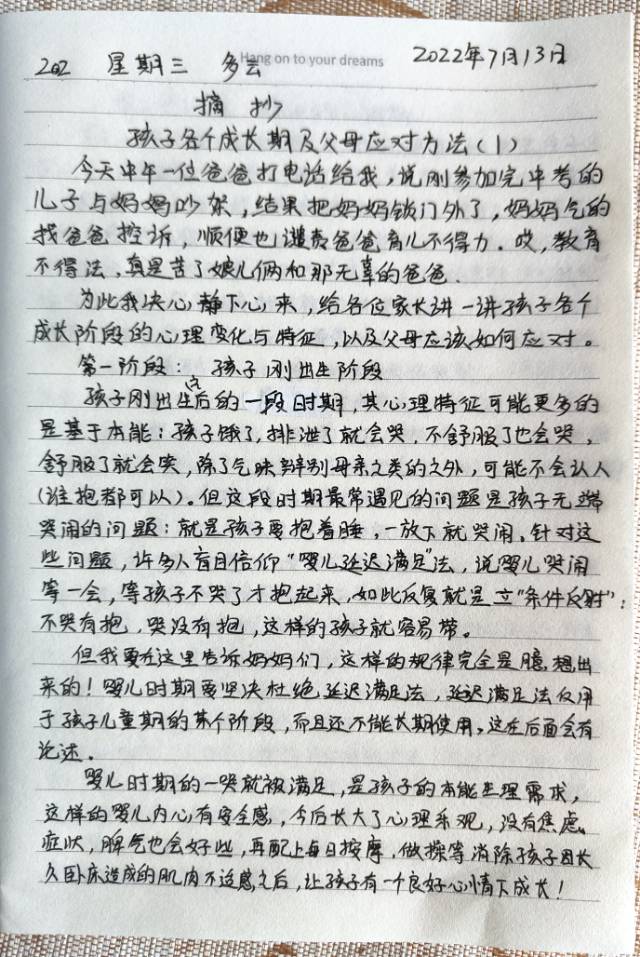 202 星期三 多云 Hang on to your dreams 2022年7月13日
摘抄
孩子各个成长期及父母应对方法(1)
今天中午一位爸爸打电话给我,说刚参加完中考的
儿子与妈妈吵架,结果把妈妈锁门外了,妈妈气的
找爸爸控诉,顺便也谴责爸爸育儿不得力。哎,教育
不得法,真是苦了娘儿俩和那无辜的爸爸.
为此我决心静下心来,给各位家长讲一讲孩子各个
成长阶段的心理变化与特征,以及父母应该如何应对。
第一阶段: 孩子刚出生阶段
孩子刚出生后的这一段时期,其心理特征可能更多的
是基于本能:孩子饿了,排泄了就会哭,不舒服了也会哭,
舒服了就会笑,除了气味辩别母亲之类的之外,可能不会认人
(谁抱都可以)。但这段时期最常遇见的问题是孩子无端
哭闹的问题:就是孩子要抱着睡,一放下就哭闹。针对这
些问题,许多人盲目信仰“婴儿延迟满足”法,说婴儿哭闹
等一会,等孩子不哭了才抱起来,如此反复就是立“条件反射”:
不哭有抱,哭没有抱,这样的孩子就容易带。
但我要在这里告诉妈妈们,这样的规律完全是臆想出
来的!婴儿时期要坚决杜绝延迟满足法,延迟满足法仅用
于孩子儿童期的某个阶段,而且还不能长期使用。这在后面会有
论述。
婴儿时期的一哭就被满足,是孩子的本能生理需求,
这样的婴儿内心有安全感,今后长大了心理乐观,没有焦虑
症状,脾气也会好些,再配上每日按摩,做操等消除孩子因长
久卧床造成的肌肉不适感之后,让孩子有一个良好心情下成长!